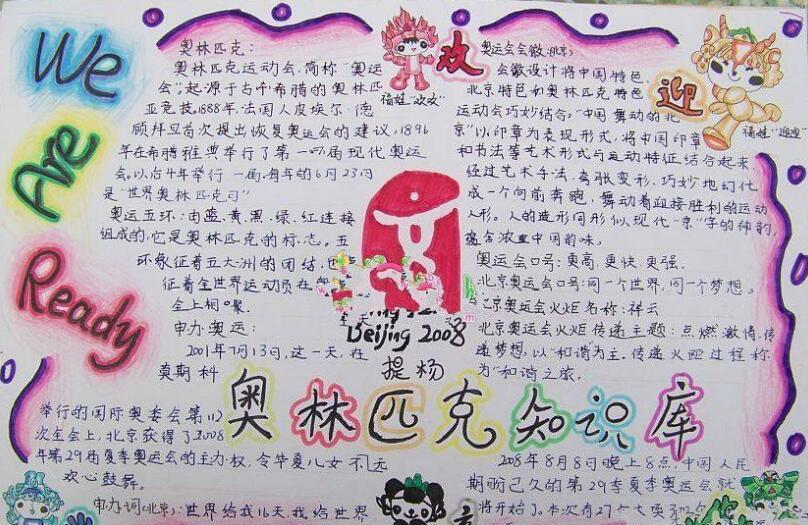 We
Are
Ready
奥林匹克：
奥林匹克运动会，简称“奥运
会”，起源于古希腊的奥林匹
亚竞技。1888年法国人皮埃尔·德
顾拜旦首次提出恢复奥运会的建议，1896
年在希腊雅典举行了第一届现代奥运
会。以后4年举行一届，每年的6月23日
是“世界奥林匹克日”
奥运五环：由蓝、黄、黑、绿、红连接
组成的，它是奥林匹克的标志。五
环象征着五大洲的团结，
征着全世界运动员在
全上相聚.
申办奥运：
2001年7月13日，这一天，在
莫斯科
举行的国际奥委会第112
次全会上，北京获得了2008
年第29届夏季奥运会的主办权，令华夏儿女
欢心鼓舞。
申办词(北京)：世界给我16天，我给世界
福娃“欢欢”
欢
迎
福娃“迎迎”
Beijing 2008
提杨
奥林匹克知识库
奥运会会徽(北京)
会徽设计将中国特色、
北京特色和奥林匹克特色
运动会巧妙结合。“中国舞动的北
京”以印章为表现形式，将中国印章
和书法等艺术形式与运动特征结合起来，
经过艺术手法，夸张变形，巧妙地幻化
成一个向前奔跑，舞动着迎接胜利的运动
人形。人的造形同形似现代“京”字的神韵，
蕴含浓重中国韵味。
奥运会口号：更高、更快、更强.
北京奥运会口号：同一个世界，同一个梦想。
北京奥运会火炬名称：祥云
北京奥运会火炬传递主题：点燃激情，传
递梦想，以“和谐”为主.传递火炬过程称
为“和谐之旅.
2008年8月8日晚上8点，中国人民
期盼已久的第29季夏季奥运会就
将开始了。本次有27个大项302